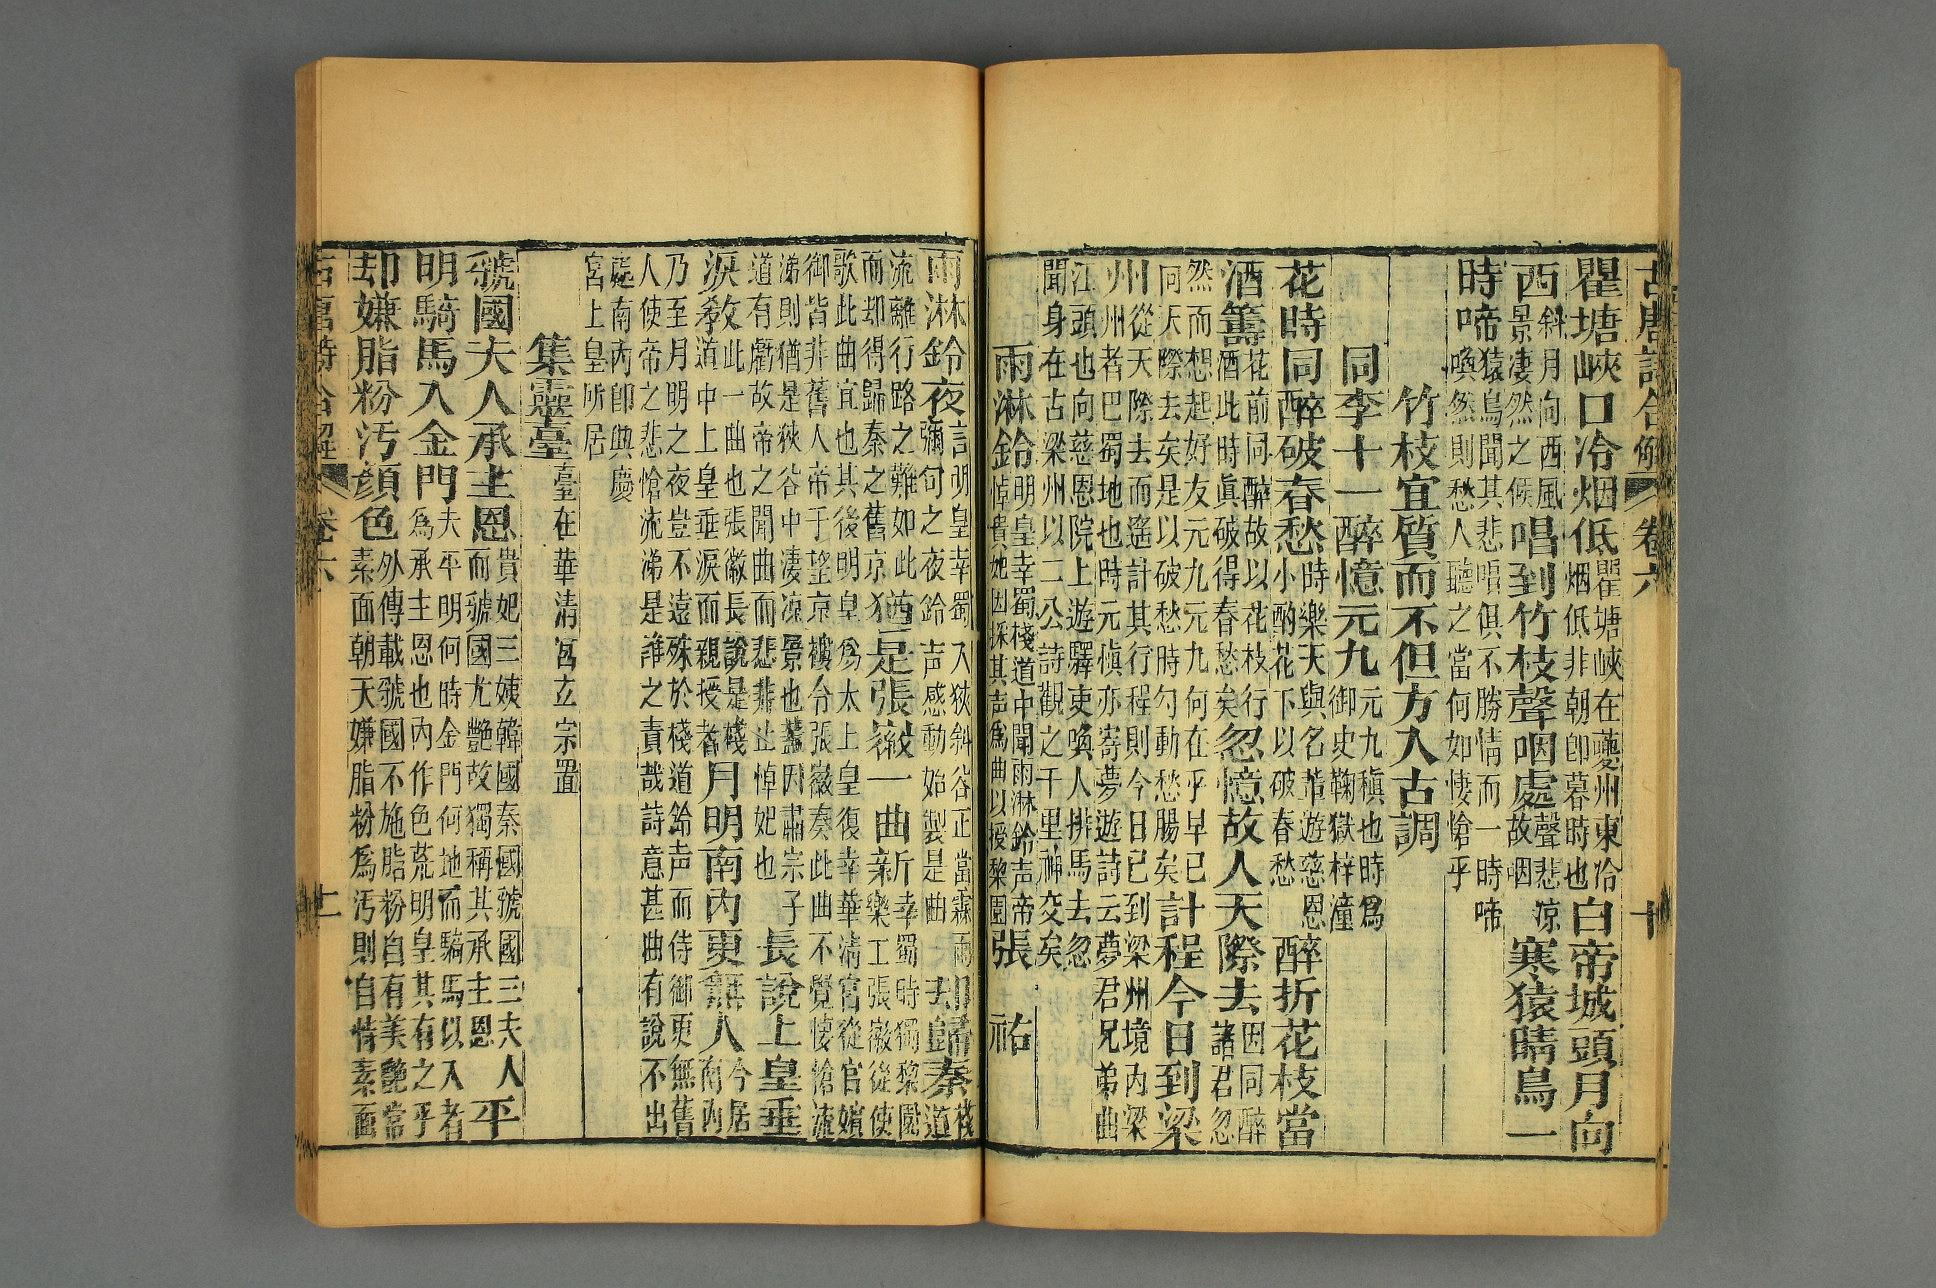 古唐詩合解 卷六 十
瞿塘峽口冷烟低瞿塘峽在夔州東冾烟低非朝卽暮時也白帝城頭月向
西斜月向西風景凄然之候唱到竹枝聲咽處聲悲凉故咽寒猿晴鳥一
時啼猿鳥聞其悲唱俱不勝情而一時啼喚然則愁人聽之當何如悽愴乎
竹枝宜質而不但方入古調
同李十一醉憶元九元九稹也時爲御史鞠獄梓潼
花時同醉破春愁時樂天與名輩遊慈恩小酌花下以破春愁醉折花枝當
酒籌花前同醉故以花枝行酒此時眞破得春愁矣忽憶故人天際去因同醉諸君忽
然而想起好友元九元九何在乎早已向天際去矣是以破愁時勾動愁腸矣計程今日到梁
州從天際去而遙計其行程則今日已到梁州境內梁州者巴蜀地也時元慎亦寄夢遊詩云夢君兄弟曲
江頭也向慈恩院上遊驛吏喚人排馬去忽聞身在古梁州以二公詩觀之千里神交矣
雨淋鈴明皇幸蜀棧道中聞雨淋鈴声帝悼貴妃因採其声爲曲以授梨園張祐
雨淋鈴夜言明皇幸蜀入狹斜谷正當霖雨彌旬之夜鈴声感動始製是曲却歸秦棧道
流離行路之難如此而却得歸秦之舊京猶是張徽一曲新幸蜀時獨梨園樂工張徽從使
歌此曲宜也其後明皇爲太上皇復幸華清宮從官嬪御皆非舊人帝于望京樓令張徽奏此曲不覺悽愴流
涕則猶是狹谷中淒凉景也蓋因肅宗子道有虧故帝之聞曲而悲非止悼妃也長說上皇垂
淚教此一曲也張徽長說是棧道中上皇垂淚而親授者月明南內更無人今居南內
乃至月明之夜豈不遠殊於棧道鈴声而侍御更無舊人使帝之悲愴流涕是誰之責哉詩意甚曲有說不出
處南內卽興慶宮上皇所居
集靈臺臺在華清宮玄宗置
虢國夫人承主恩貴妃三姨韓國秦國虢國三夫人而虢國尤艷故獨稱其承主恩平
明騎馬入金門夫平明何時金門何地而騎馬以入者爲承主恩也內作色荒明皇其有之乎
却嫌脂粉汚顏色外傳載虢國不施脂粉自有美艷常素面朝天嫌脂粉爲汚則自恃素面
古唐詩合解 卷六 十一